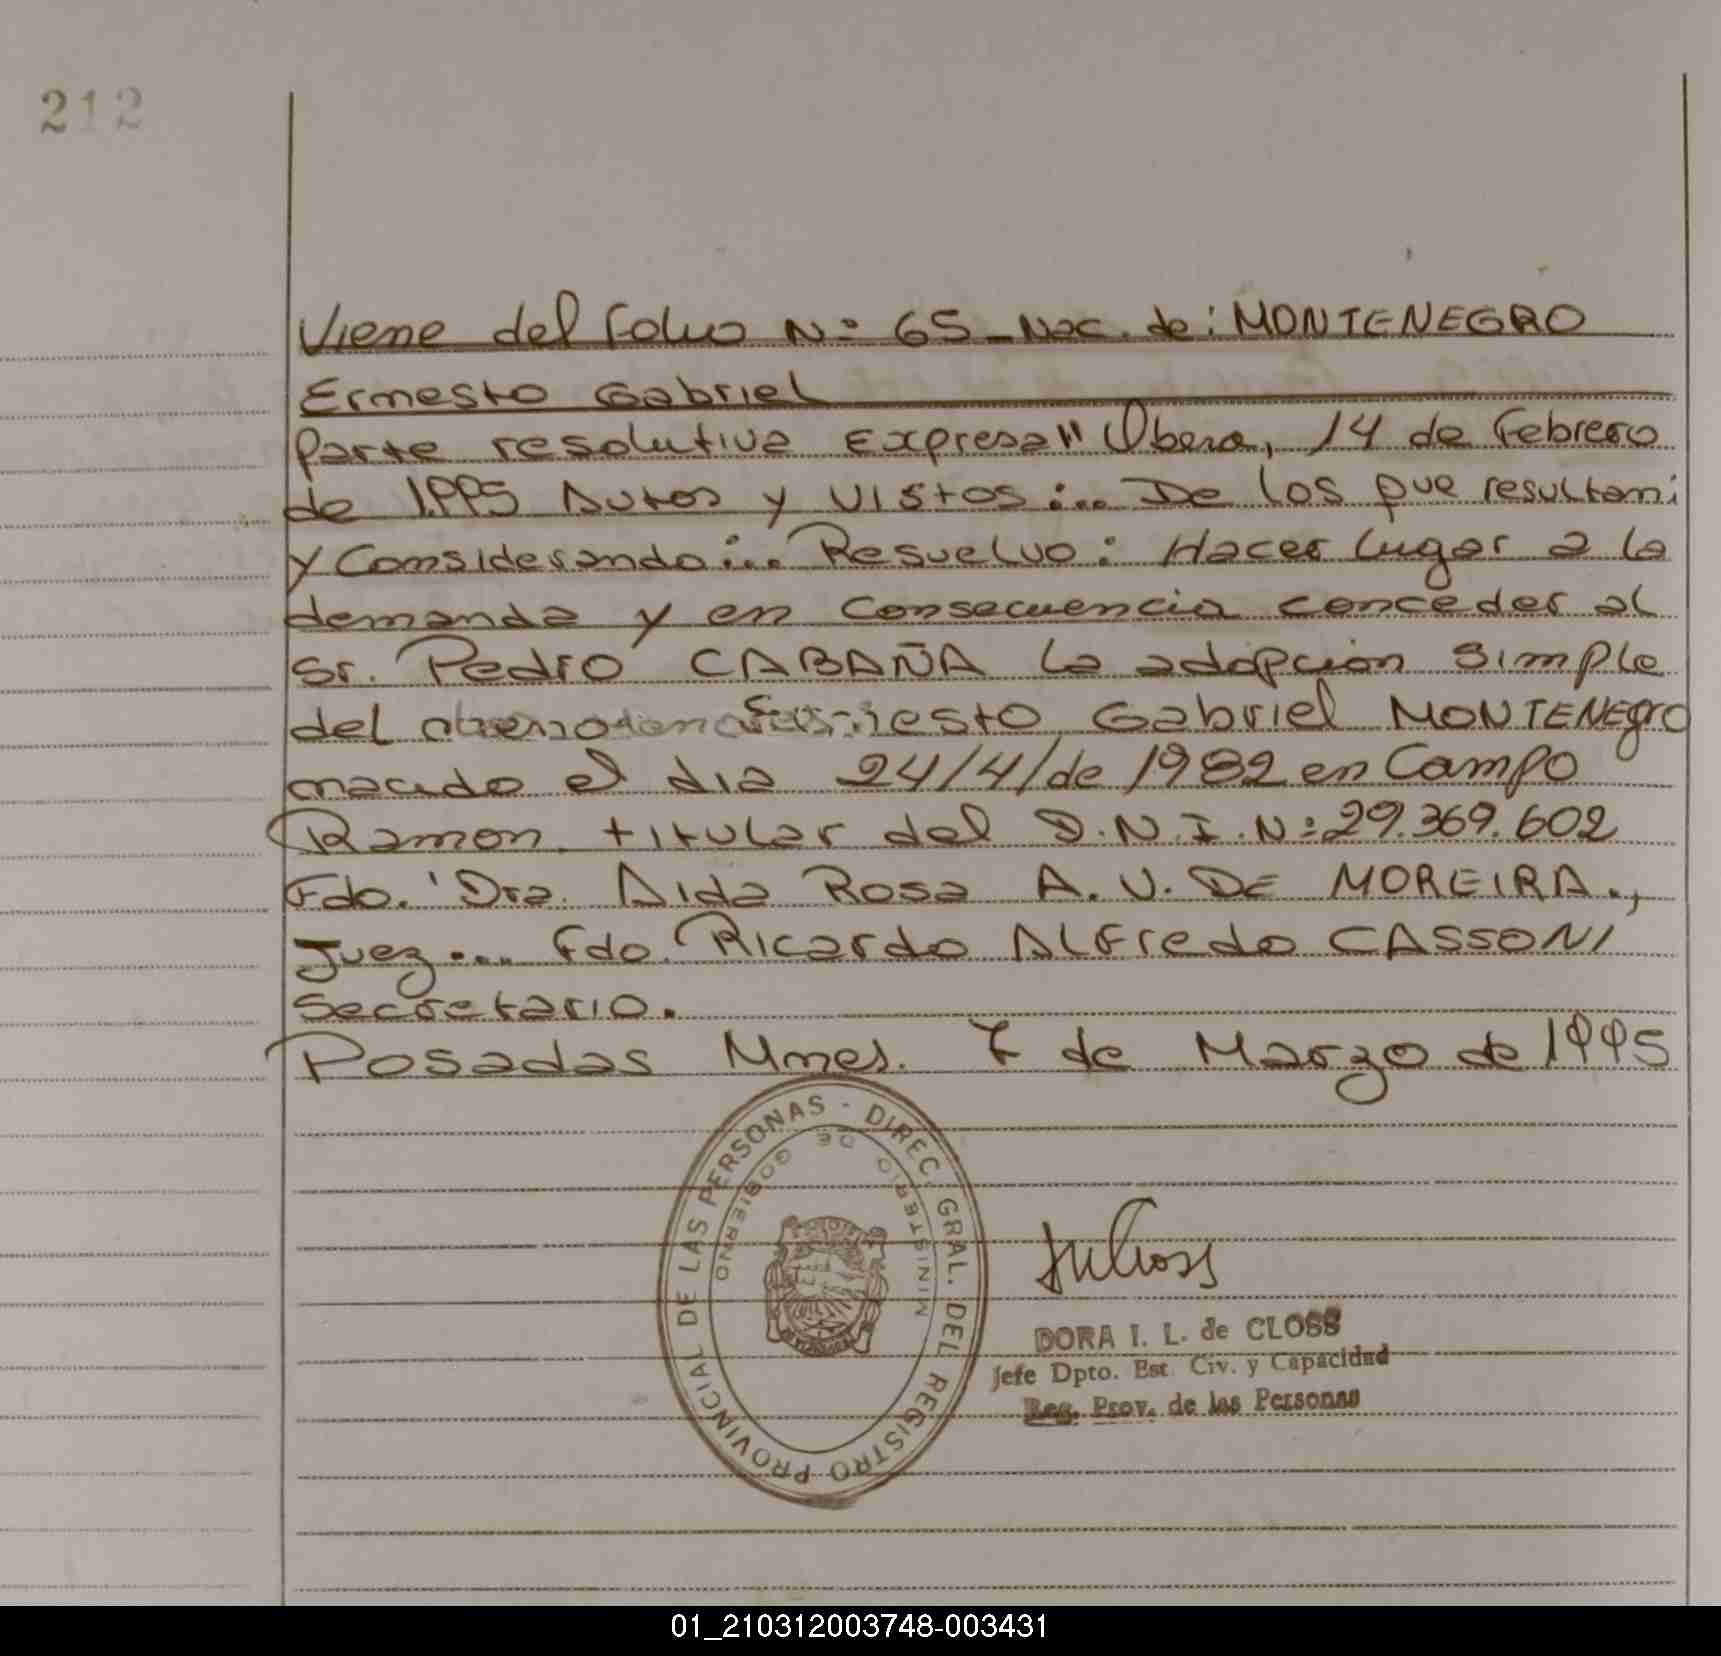 212
Viene del Folio N: 65 _ Nac. de: MONTENEGRO
Ernesto Gabriel
Parte resolutiva Expresa" Obera, 14 de Febrero
de 1.995 Autos y vistos:... De los que resultan;
y Considerando:... Resuelvo: Hacer lugar a la
demanda y en consecuencia conceder al
Sr. Pedro CABAÑA la adopcion simple
del Ernesto Gabriel MONTENEgro
nacido el dia 24/4/de 1982 en Campo
Ramon titular del D.N.I.N:29.369.602
Fdo. Dra. Aida Rosa A.V. DE MOREIRA.,
Juez... Fdo. Ricardo ALFredo CASSONI
secretario.
Posadas Mnes. 7 de Marzo de 1995
DIREC. GRAL. DEL REGISTRO PROVINCIAL DE LAS PERSONAS -
MINISTERIO DE GOBIERNO
DORA I. L. de CLOSS
Jefe Dpto. Est. Civ. y Capacidad
Reg. Prov. de las Personas
01_210312003748-003431